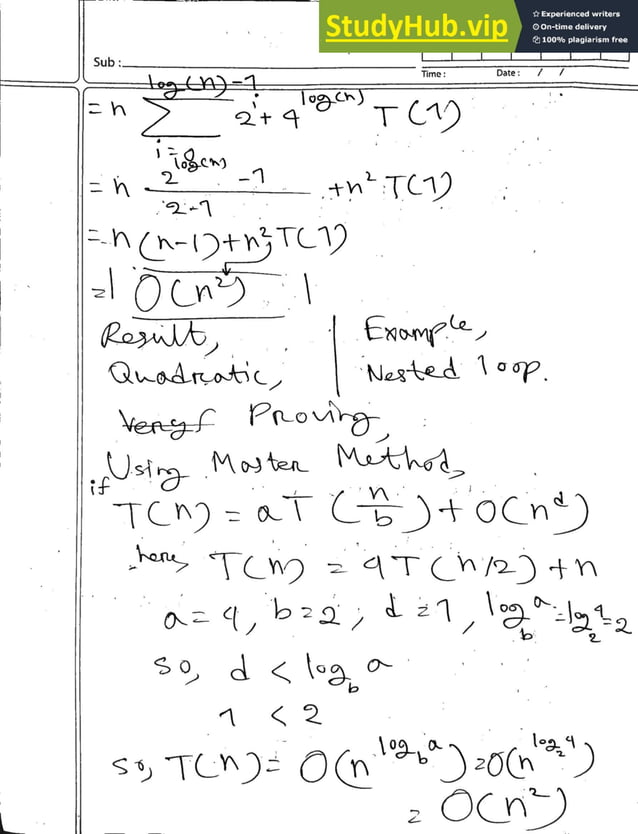 StudyHub.vip
☆ Experienced writers
On-time delivery
100% plagiarism free
Sub :
Time :
Date : / /
log(n)-1
= n ∑ 2^i + 4^log(n) T(1)
i=0
= n (2^log(n) - 1)/(2-1) + n² T(1)
= n(n-1) + n² T(1)
= | O(n²) |
Result, | Example,
Quadratic, | Nested loop.
Proving,
Using Master Method,
if
T(n) = aT (n/b) + O(n^d)
here, T(n) = 4T(n/2) + n
a=4, b=2, d=1, log_b a = log_2 4 = 2
so, d < log_b a
1 < 2
so, T(n) = O(n^log_b a) = O(n^log_2 4)
= O(n²)